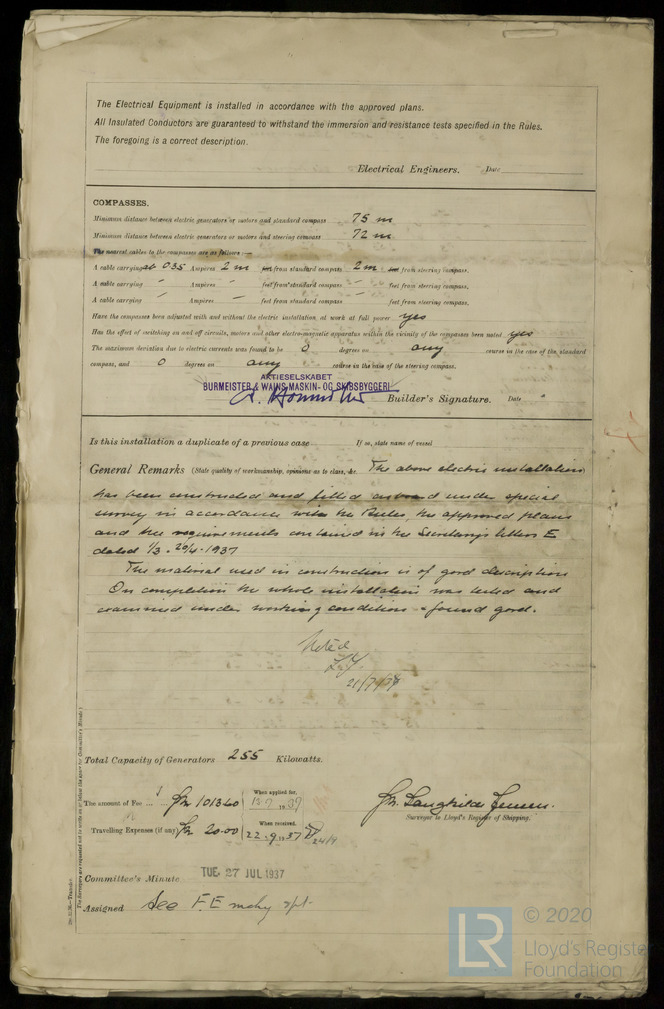 The Electrical Equipment is installed in accordance with the approved plans.
All Insulated Conductors are guaranteed to withstand the immersion and resistance tests specified in the Rules.
The foregoing is a correct description.
Electrical Engineers. Date
COMPASSES.
Minimum distance between electric generators or motors and standard compass 75 m
Minimum distance between electric generators or motors and steering compass 72 m
The nearest cables to the compasses are as follows:—
A cable carrying 035 Ampères 2 m feet from standard compass 2 m feet from steering compass.
A cable carrying Ampères feet from standard compass feet from steering compass.
A cable carrying Ampères feet from standard compass feet from steering compass.
Have the compasses been adjusted with and without the electric installation, at work at full power yes
Has the effect of switching on and off circuits, motors and other electro-magnetic apparatus within the vicinity of the compasses been noted yes
The maximum deviation due to electric currents was found to be 0 degrees on any course in the case of the standard
compass, and 0 degrees on any course in the case of the steering compass.
AKTIESELSKABET
BURMEISTER & WAINS MASKIN- OG SKIBSBYGGERI
Builder's Signature. Date
Is this installation a duplicate of a previous case If so, state name of vessel
General Remarks (State quality of workmanship, opinions as to class, &c. The above electric installation
has been constructed and fitted onboard under special
survey in accordance with the Rules, the approved plans
and the requirements contained in the Secretary's letters E
dated 1/3 - 20/4 - 1937
The material used in construction is of good description
On completion the whole installation was tested and
examined under working conditions & found good.
Noted
21/7/37
Total Capacity of Generators 255 Kilowatts.
The amount of Fee Kr 1013.40 When applied for, 19 37
Travelling Expenses (if any) Kr 20.00 When received, 22.9.1937 24/9
Surveyor to Lloyd's Register of Shipping.
Committee's Minute TUE 27 JUL 1937
Assigned See F.E. mchy rpt.
The Surveyors are requested not to write on or below the space for Committee's Minute.)
© 2020
LR Lloyd's Register
Foundation